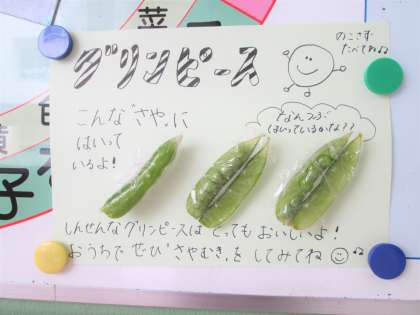 グリンピース
のこさず
たべてね♪
こんな"さや"に
はいって
いるよ!
なんつぶ
はいっているかな??
しんせんなグリンピースは とっても おいしいよ!
おうちで ぜひ"さやむき"を してみてね
菜
子